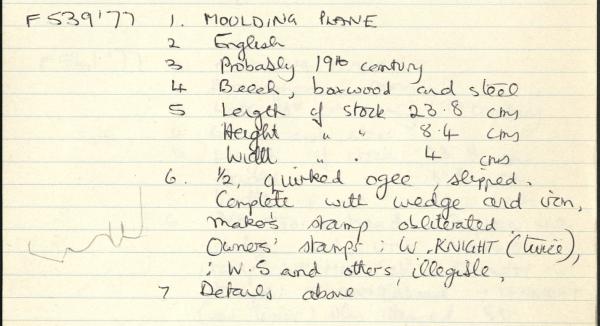 F539'77 1. MOULDING PLANE
2 English
3 Probably 19th century
4 Beech, boxwood and steel
5 Length of stock 23.8 cms
Height " " 8.4 cms
Width " . 4 cms
6. ½, quirked ogee, slipped.
Complete with wedge and iron,
maker's stamp obliterated.
Owners' stamps : W. KNIGHT (twice),
; W.S and others, illegible,
7 Details above